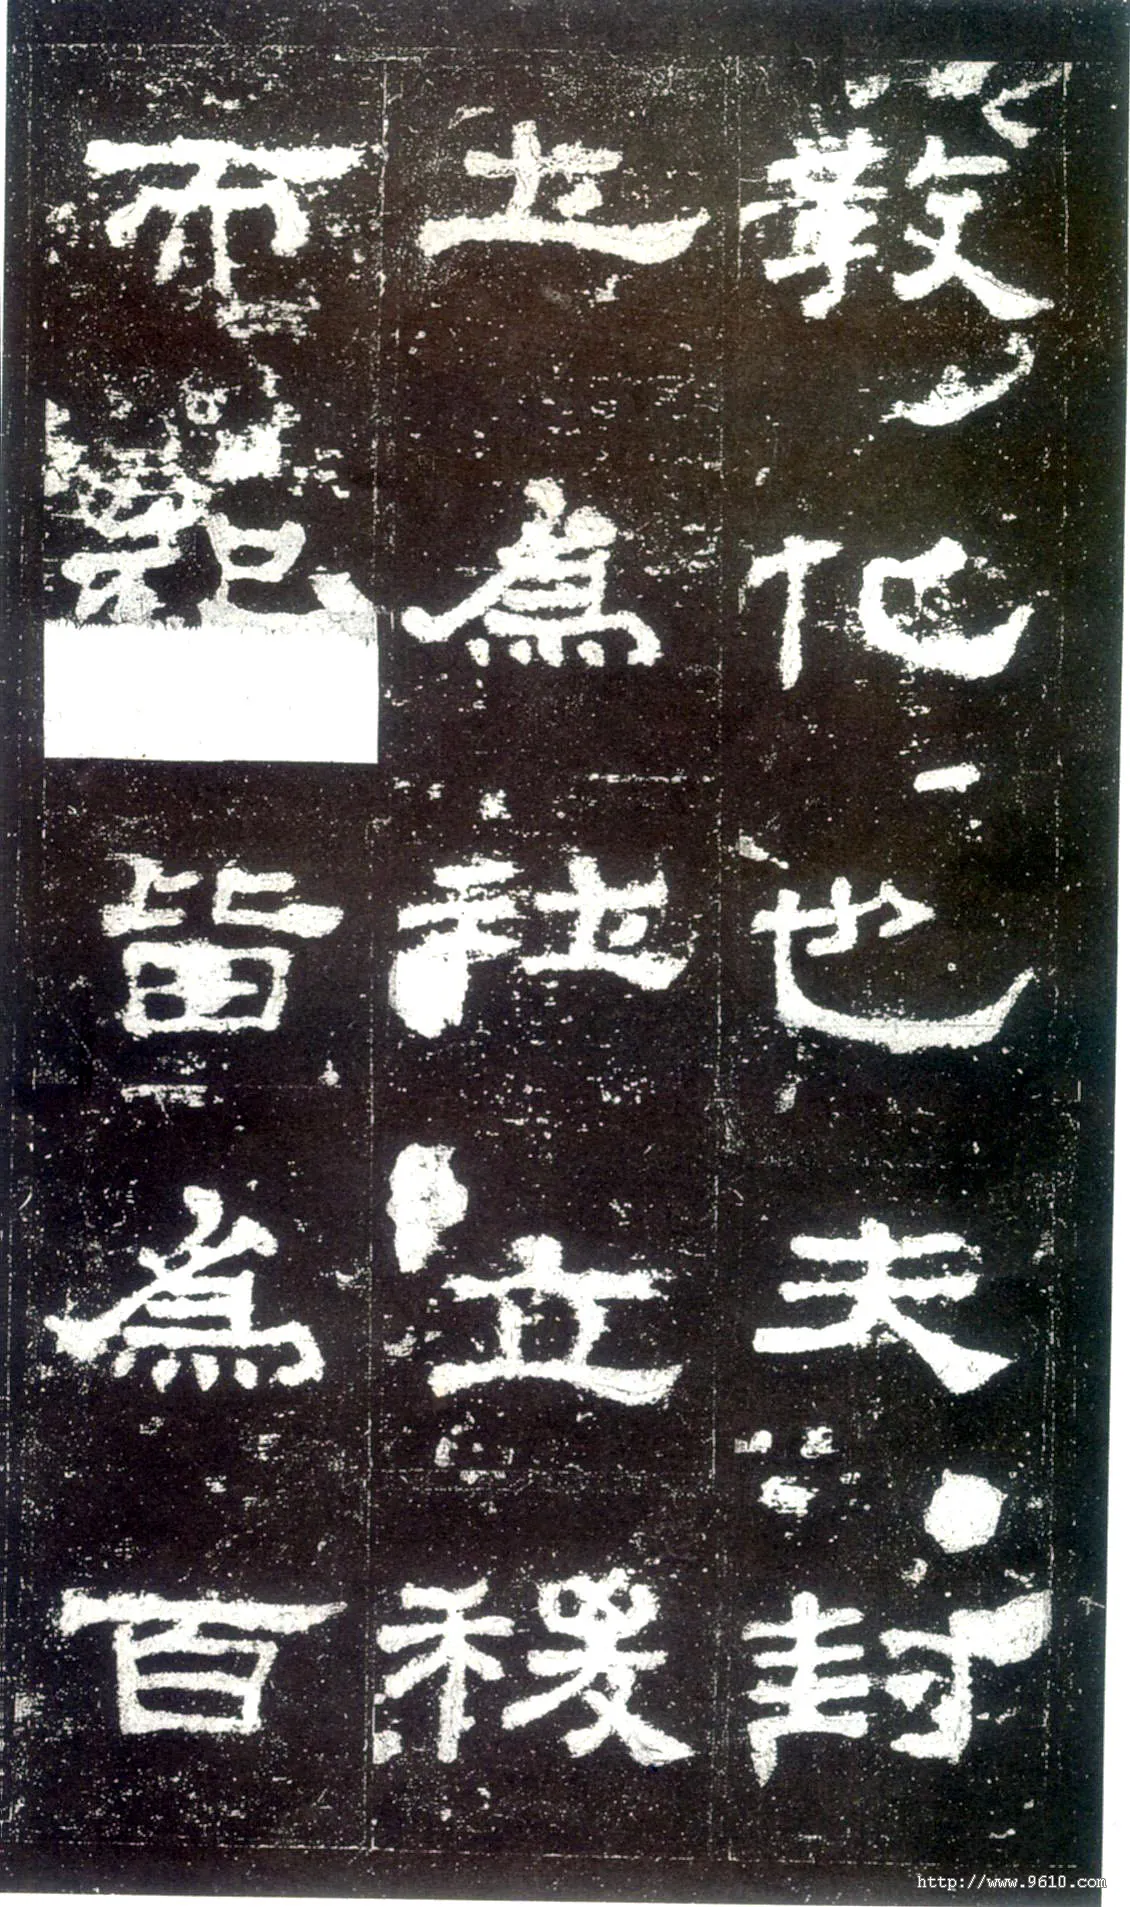 教化也夫封
土為社立稷
而祀皆為百
http://www.9610.com